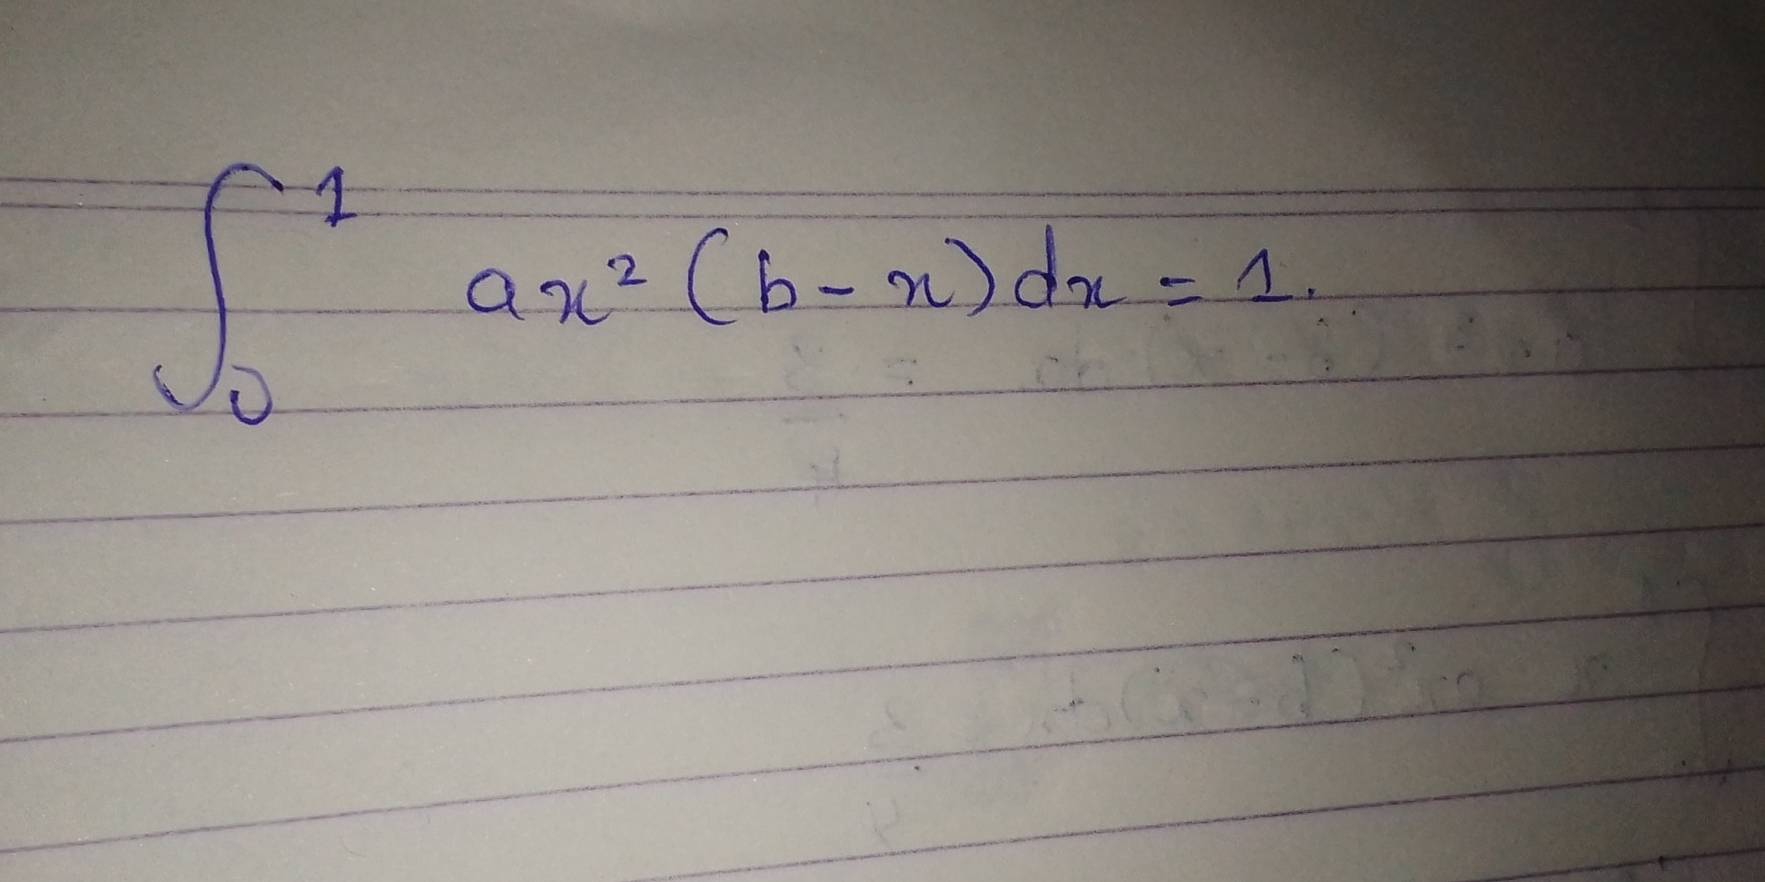 ∫₀¹ ax² (b - x) dx = 1.